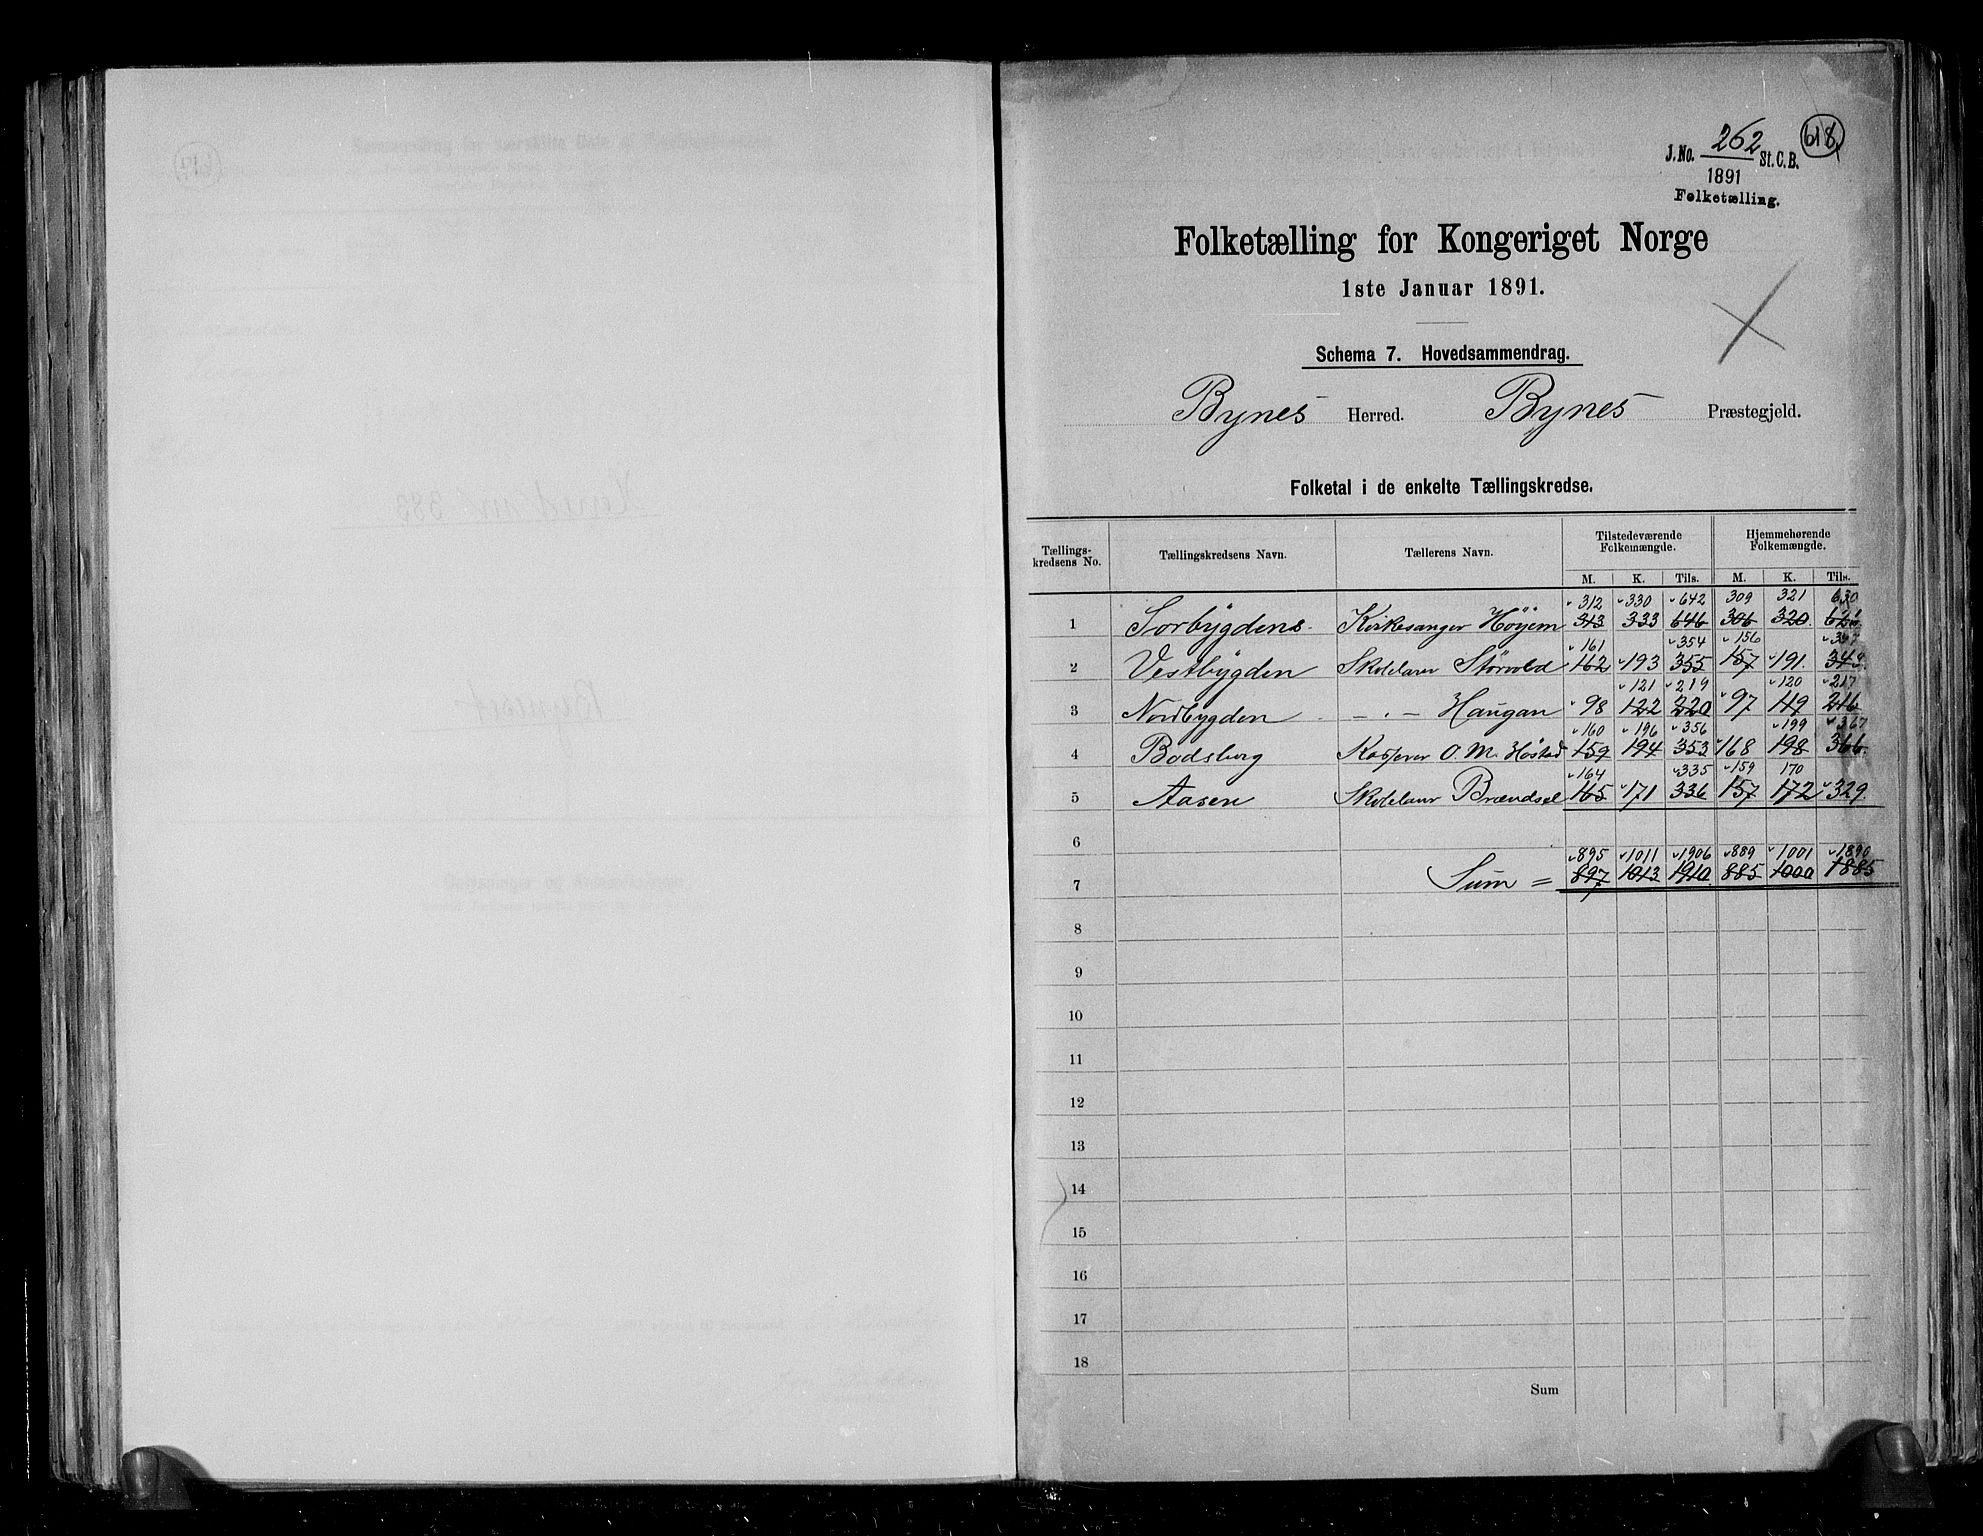 618
J. No. 262 St. C. B.
1891
Folketælling.
Folketælling for Kongeriget Norge
1ste Januar 1891.
Schema 7. Hovedsammendrag.
Bynes Herred. Bynes Præstegjeld.
Folketal i de enkelte Tællingskredse.
Tællings-kredsens No. Tællingskredsens Navn. Tællerens Navn. Tilstedeværende Folkemængde. Hjemmehørende Folkemængde.
M. K. Tils. M. K. Tils.
312 330 642 309 321 630
1 Sorbygdens Kirkesanger Höyem 313 333 646 306 320 626
161 354 156 347
2 Vestbygden Skolelærer Störvold 162 193 355 157 191 348
121 219 120 217
3 Nordbygden – " – Haugan 98 122 220 97 119 216
160 196 356 199 367
4 Bodsberg Kasserer O. M. Höstad 159 194 353 168 198 366
164 335 159 170
5 Aasen Skolelærer Brændsel 165 171 336 157 172 329
6
895 1011 1906 889 1001 1890
7 Sum = 897 1013 1910 885 1000 1885
8
9
10
11
12
13
14
15
16
17
18
Sum